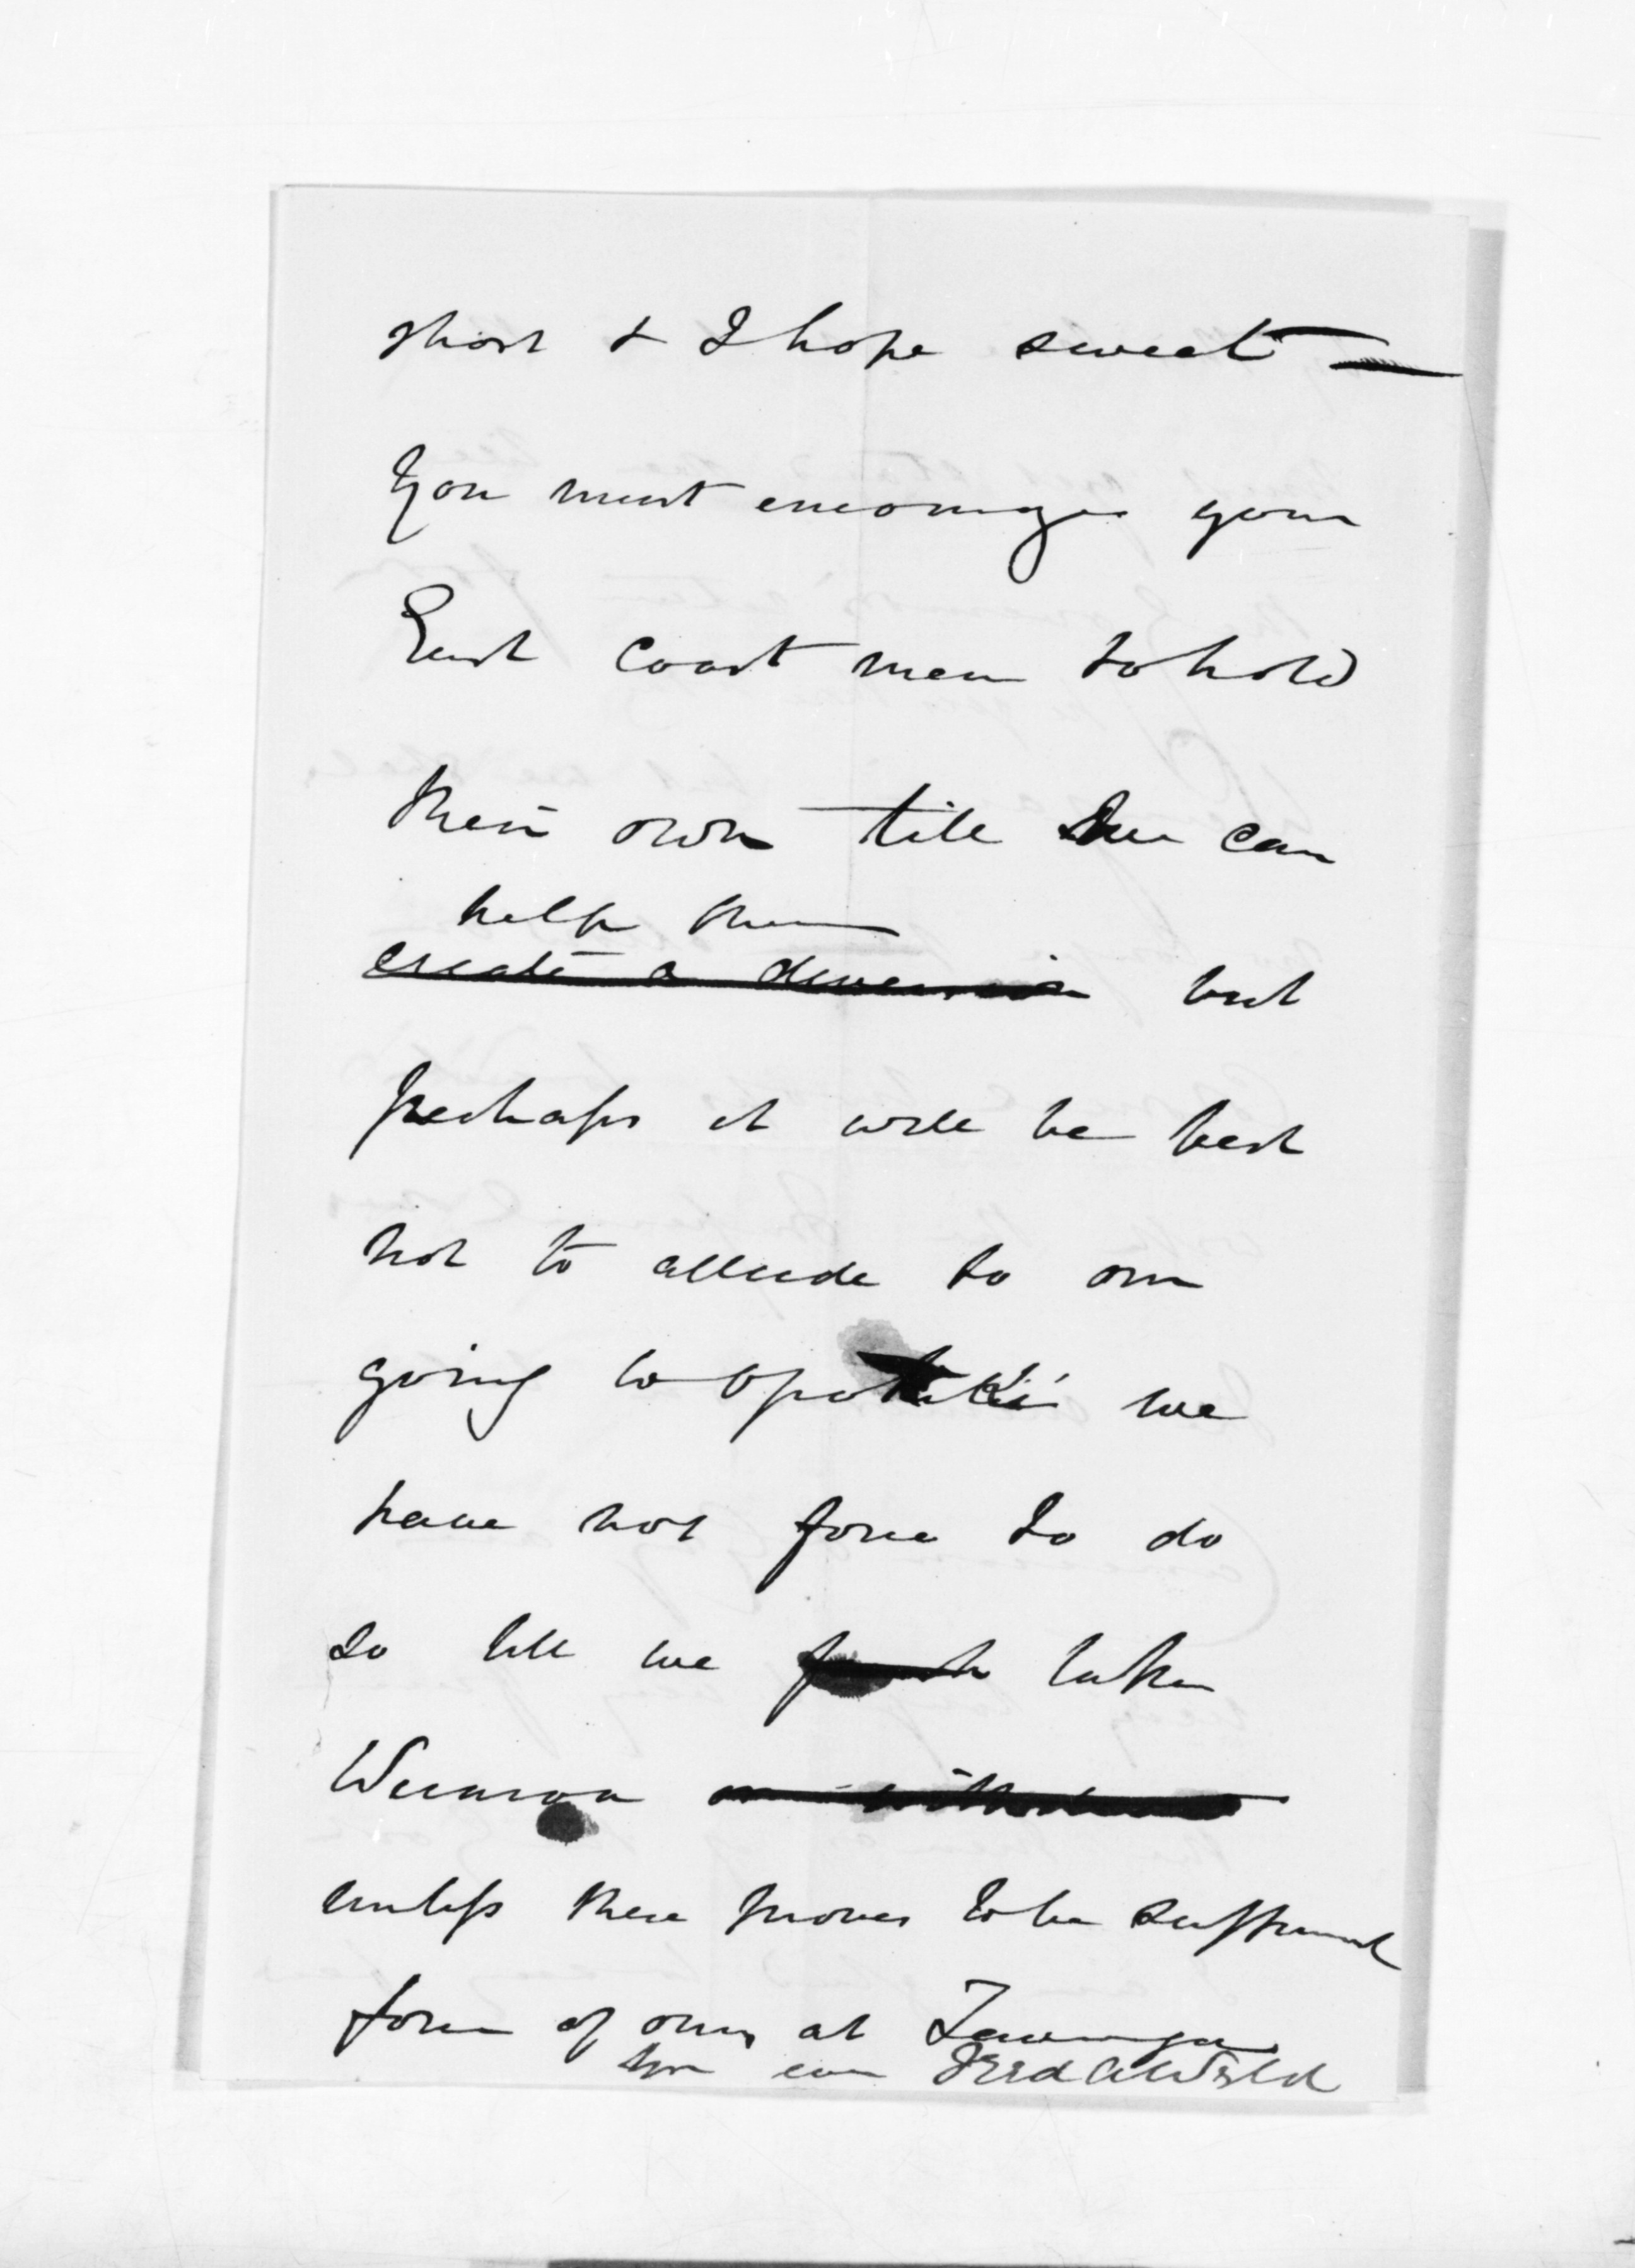 short & I hope sweet —
You must encourage your
East Coast men to hold
their own till we can
help them
create a diversion but
perhaps it will be best
not to allude to our
going to Opotiki we
have not force to do
so till we taken
Weraroa
unless there proves to be sufficient
force of ours at Tauranga
Yrs ever Fred A Weld